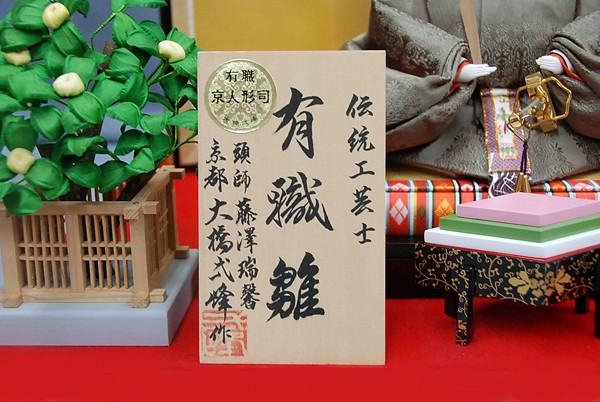 伝统工芸士
有職雛
有職
京人形司
頭師藤澤瑞馨
京都大橋弌峰作